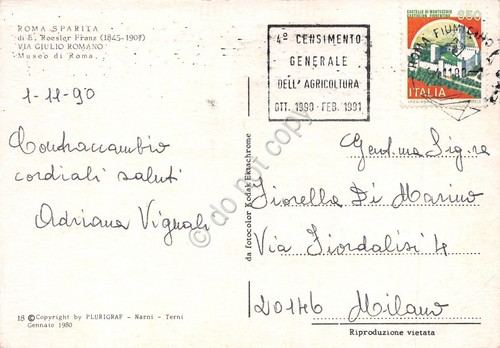 ROMA SPARITA
di E. Roesler Franz (1845-1907)
VIA GIULIO ROMANO
Museo di Roma
1-11-90
Contraccambio
cordiali saluti
Adriana Vignali
18 © Copyright by PLURIGRAF - Narni - Terni
Gennaio 1980
da fotocolor Kodak Ektachrome
4° CENSIMENTO
GENERALE
DELL'AGRICOLTURA
OTT. 1990 - FEB. 1991
CASTELLO DI MONTECCHIO
850
ITALIA
ROMA FIUMICINO
Gent.ma Sig.ra
Fiorella Di Marino
Via Fiordalisi 4
20146 Milano
Riproduzione vietata
do not copy